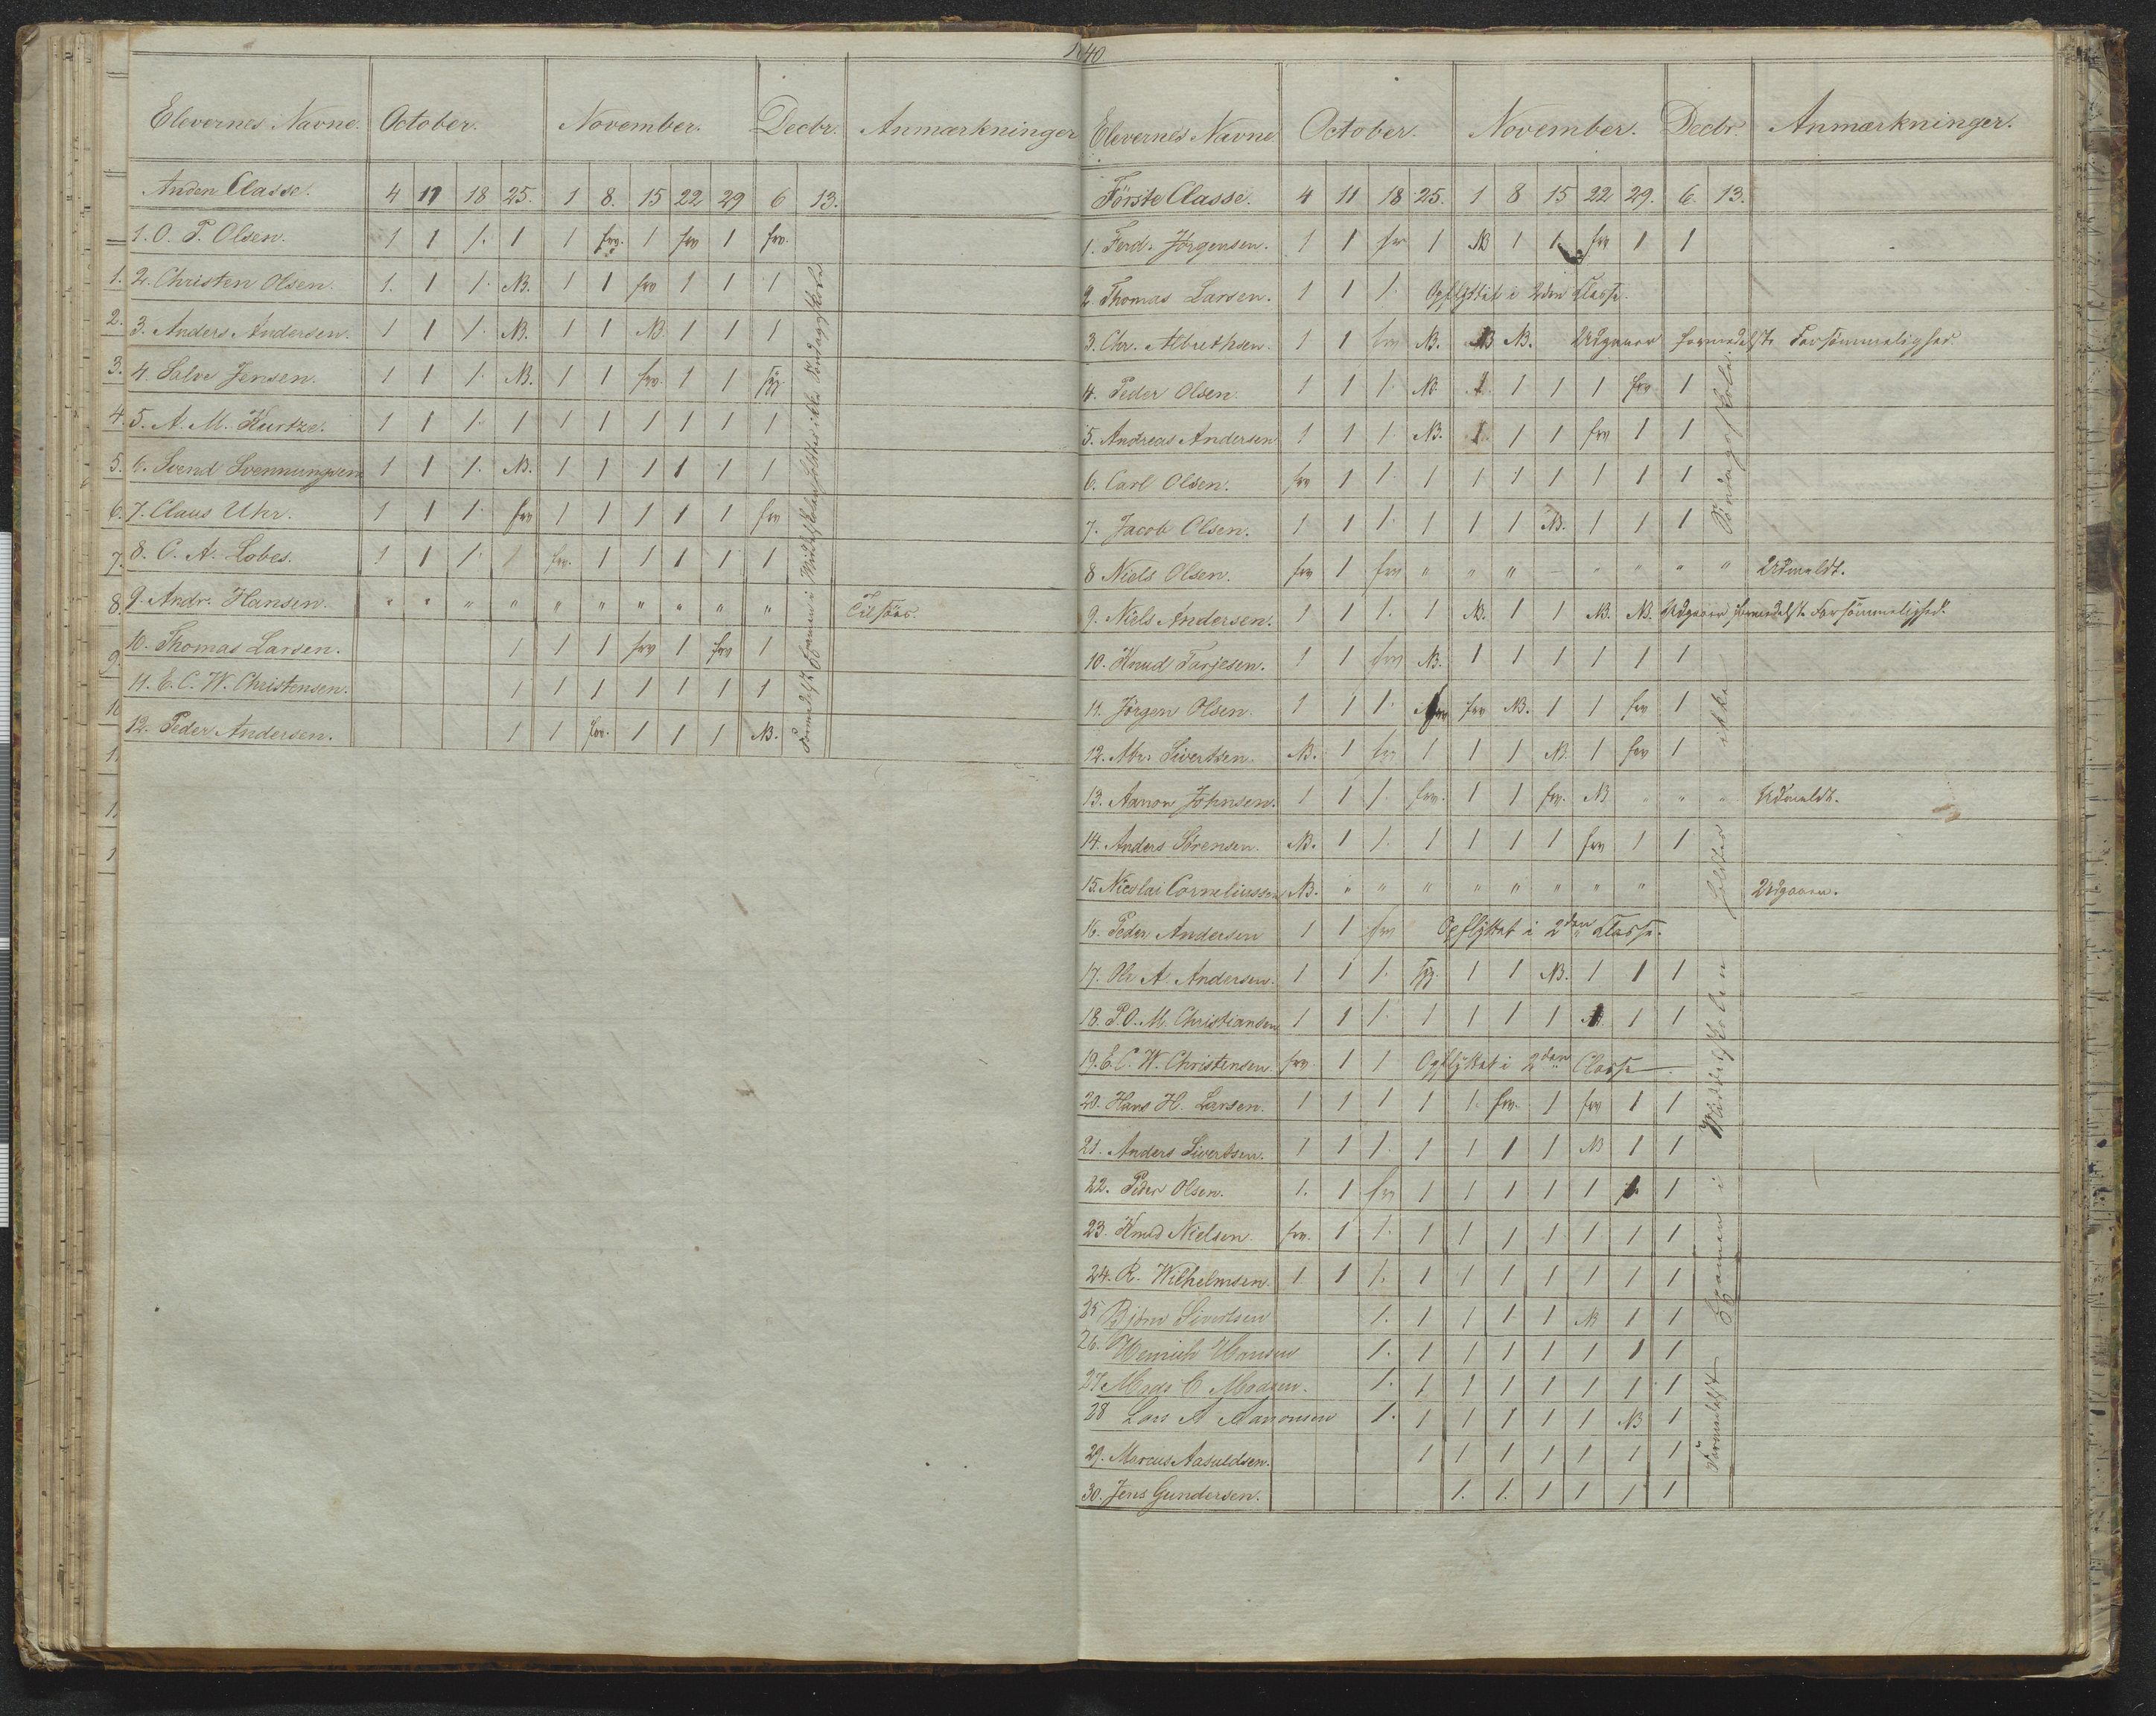 1840
Elevernes Navne. October. November. Decbr. Anmærkninger
Anden Classe. 4 11 18 25. 1 8. 15 22 29 6 13.
1. O. P. Olsen. 1 1 1. 1 1 frv. 1 frv 1 frv.
2. Christen Olsen. 1. 1 1. NB. 1 1 frv 1 1 1
3. Anders Andersen. 1 1 1. NB. 1 1 NB. 1 1 1
4. Salve Jensen. 1 1 1. NB. 1 1 frv. 1 1 syg
5. A. M. Kurtze. 1 1 1. 1 1 1 1 1 1 1
6. Svend Svennungsen 1 1 1. NB. 1 1 1 1 1 1
7. Claus Uhr. 1 1 1. frv 1 1 1 1 1 frv
8. C. A. Lobes. 1 1 1. 1 frv. 1 1 1 1 1
9. Andr. Hansen. " " " " " " " " " " Tilsöes.
10. Thomas Larsen. 1 1 1 frv 1 frv 1
11. E. C. W. Christensen. 1 1 1 1 1 1 1
12. Peder Andersen. 1 1 frv. 1 1 1 NB.
Formedelst Examen i Middelskolen holdtes ikke Söndagsskole.
1.
2.
3.
4.
5.
6.
7.
8.
9.
10
1
1
1
Elevernes Navne October. November. Decbr. Anmærkninger.
Förste Classe. 4 11 18 25. 1 8 15 22 29. 6. 13.
1. Ferd. Jörgensen. 1 1 frv 1 NB 1 1 frv 1 1
2. Thomas Larsen. 1 1 1. Opflyttet i 2den Classe.
3. Chr. Albrethsen. 1 1 frv NB. NB NB. Udgaaer formedelst Forsömmelighed
4. Peder Olsen. 1 1 1. NB. 1. 1 1 1 frv 1
5. Andreas Andersen 1 1 1. NB. 1. 1 1 frv 1 1
6. Carl Olsen. frv 1 1. 1 1 1 1 1 1 1
7. Jacob Olsen. 1 1 1. 1 1 1 NB. 1 1 1
8 Niels Olsen. frv 1 frv " " " " " " " Udmeldt.
9. Niels Andersen. 1 1 1. 1 NB. 1 1 NB. NB. Udgaaer formedelst Forsömmelighed.
10. Knud Tarjesen. 1 1 frv NB. 1 1 1 1 1 1
11. Jörgen Olsen. 1 1 1. frv frv NB. 1 1 frv 1
12. Abr. Sivertsen. NB. 1 frv 1 1 1 NB. 1 frv 1
13. Aanon Johnsen. 1 1 1. frv. 1 1 frv. NB " " " Udmeldt.
14. Anders Sörensen. NB. 1 1. 1 1 1 1 frv 1 1
15. Nicolai Corneliussen NB. " " " " " " " " Udgaaer.
16. Peder Andersen 1 1 frv Opflyttet i 2den Classe.
17. Ole A. Andersen. 1 1 1. syg. 1 1 NB. 1 1 1
18. P. O. M. Christiansen 1 1 1. 1 1 1 1 1 1 1
19. E. C. W. Christensen. frv 1 1 Opflyttet i 2den Classe.
20. Hans H. Larsen. 1 1 1 1 1. frv. 1 frv 1 1
21. Anders Sivertsen. 1 1 1. 1 1 1 1 NB 1 1
22. Peder Olsen. 1. 1 frv 1 1 1 1 1 1. 1
23. Knud Nielsen. frv. 1 1. 1 1 1 1 1 1 1
24. R. Wilhelmsen. 1. 1 1. 1 1 1 1 1 1 1
25 Björn Sivertsen 1. 1 1 1 1 NB 1 1
26. Henrich Hansen 1. 1 1 1 1 1 1 1
27 Mads C Madsen. 1. 1 1 1 1 1 1 1
28 Lars A Aanonsen 1. 1 1 1 1 1 NB 1
29. Marcus Aasuldsen. 1 1 1 1 1 1 1
30. Jens Gundersen. 1. 1. 1 1 1 1
Formedelst Examen i Middelskolen holdtes ikke Söndagsskole.